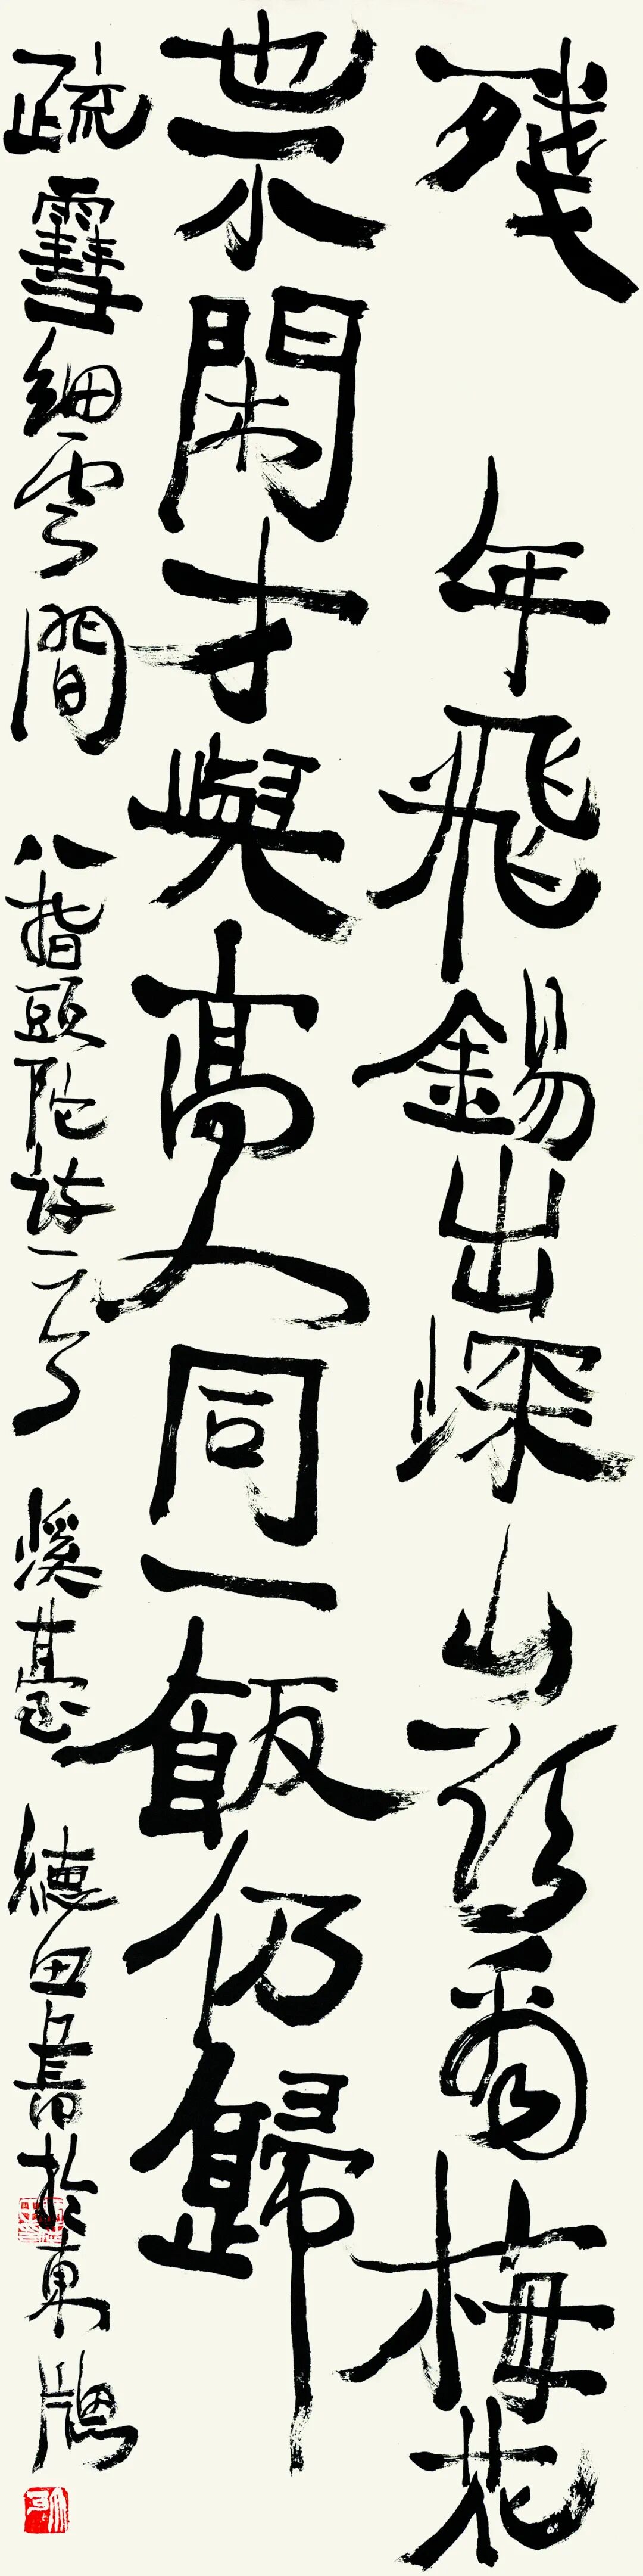 殘年飛錫出深山頭爾梅花
也不閑才與高人同一飯仍歸
疏雪細雲間 八指頭陀詩一首 溪臺 德田書於東牕